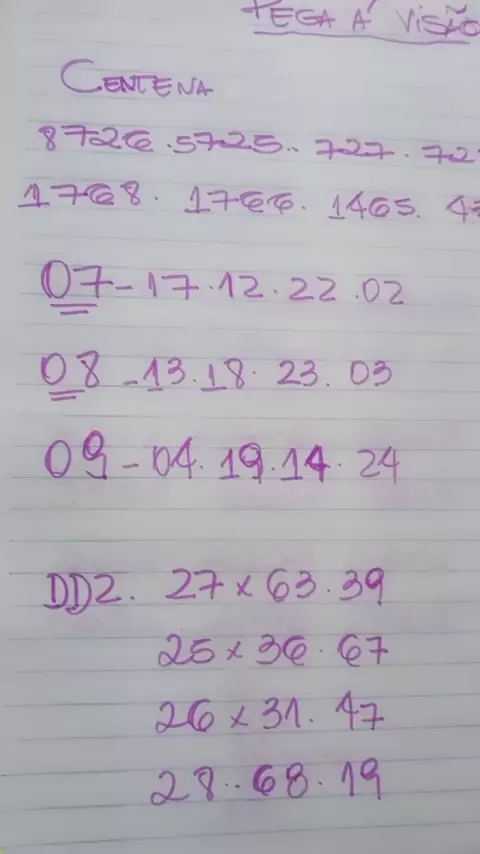 PEGA A VISÃO
CENTENA
8726.5725.. 727. 72
1768. 1766. 1465. 4
07-17.12.22.02
08-13.18.23.03
09-04.19.14.24
DD2. 27x63.39
25x36.67
26x31.47
28..68.19